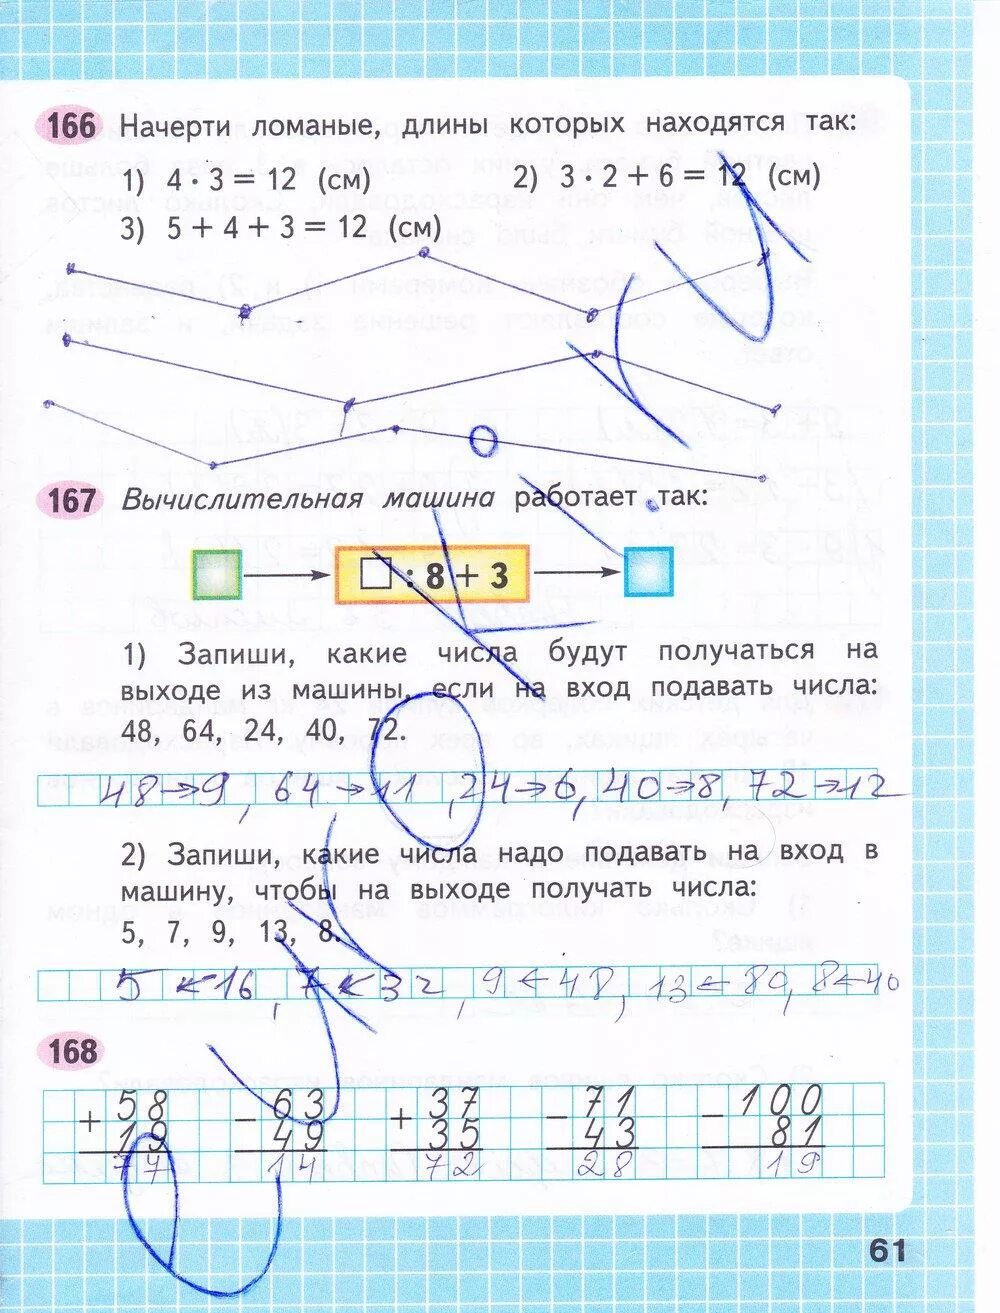 166 Начерти ломаные, длины которых находятся так:
1) 4 · 3 = 12 (см) 2) 3 · 2 + 6 = 12 (см)
3) 5 + 4 + 3 = 12 (см)
167 Вычислительная машина работает так:
□ : 8 + 3
1) Запиши, какие числа будут получаться на
выходе из машины, если на вход подавать числа:
48, 64, 24, 40, 72.
48→9, 64→11, 24→6, 40→8, 72→12
2) Запиши, какие числа надо подавать на вход в
машину, чтобы на выходе получать числа:
5, 7, 9, 13, 8.
5←16, 7←32, 9←48, 13←80, 8←40
168
+ 58 − 63 + 37 − 71 − 100
19 49 35 43 81
77 14 72 28 19
61